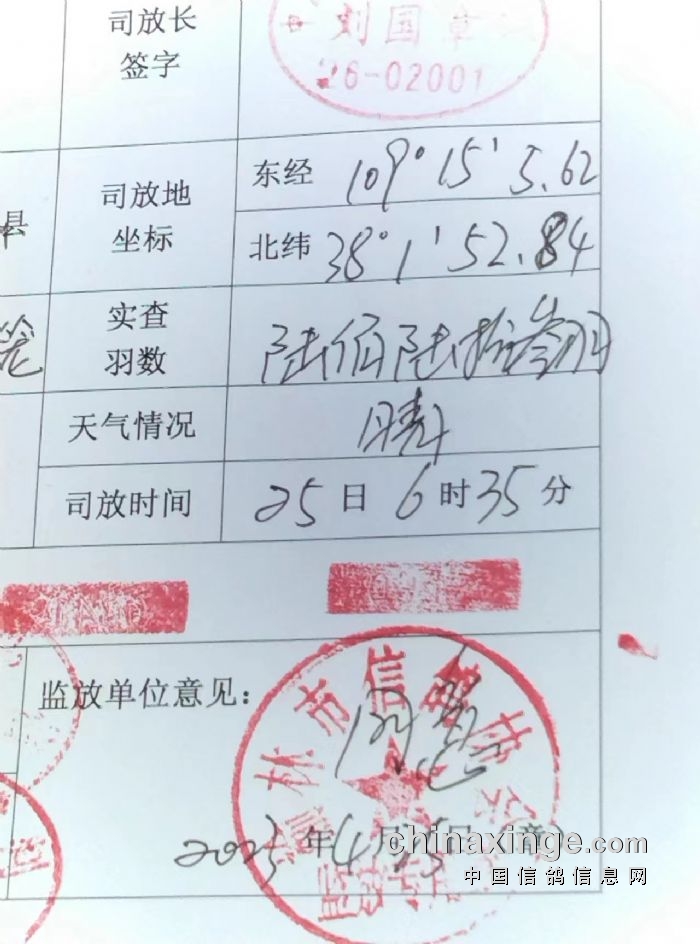 司放长
签字
刘国章
26-02001
司放地
坐标
东经 109°15′5.62
北纬 38°1′52.84
县
实查
羽数
陆佰陆拾叁羽
笼
天气情况
晴
司放时间
25日6时35分
监放单位意见:
同意
榆林市信鸽协会
2025年4月25日(章)
chinaxinge.com
中国信鸽信息网